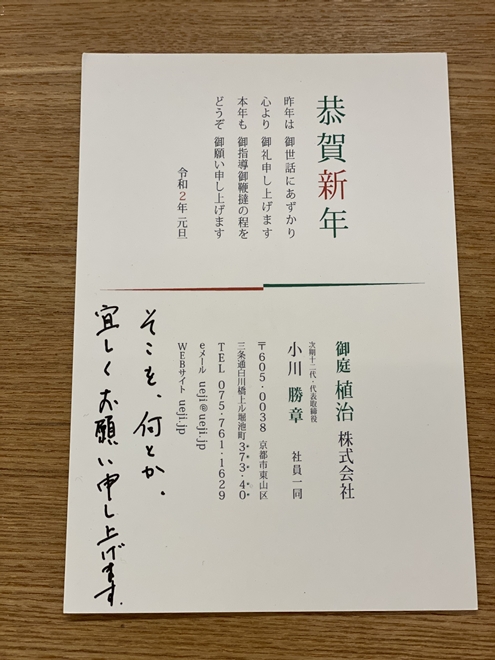 恭賀新年
昨年は 御世話にあずかり
心より 御礼申し上げます
本年も 御指導御鞭撻の程を
どうぞ 御願い申し上げます
令和2年元旦
御庭 植治 株式会社
次期十二代・代表取締役
小川 勝章 社員一同
〒605-0038 京都市東山区
三条通白川橋上ル堀池町373-40
TEL 075-761-1629
eメール ueji@ueji.jp
WEBサイト ueji.jp
そこを、何とか、
宜しくお願い申し上げます。